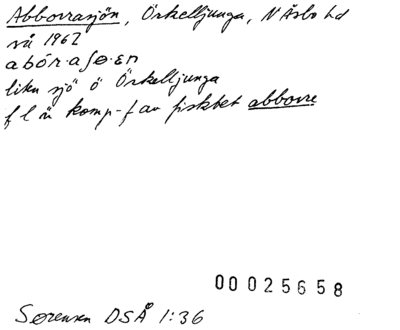 Abborrasjön, Örkelljunga, N Åsbo hd
rå 1962
abór·aʃø·ɛn
liten sjö ö Örkelljunga
f l är komp-f av fiskbet abborre
00025658
Sørensen DSÅ 1:36